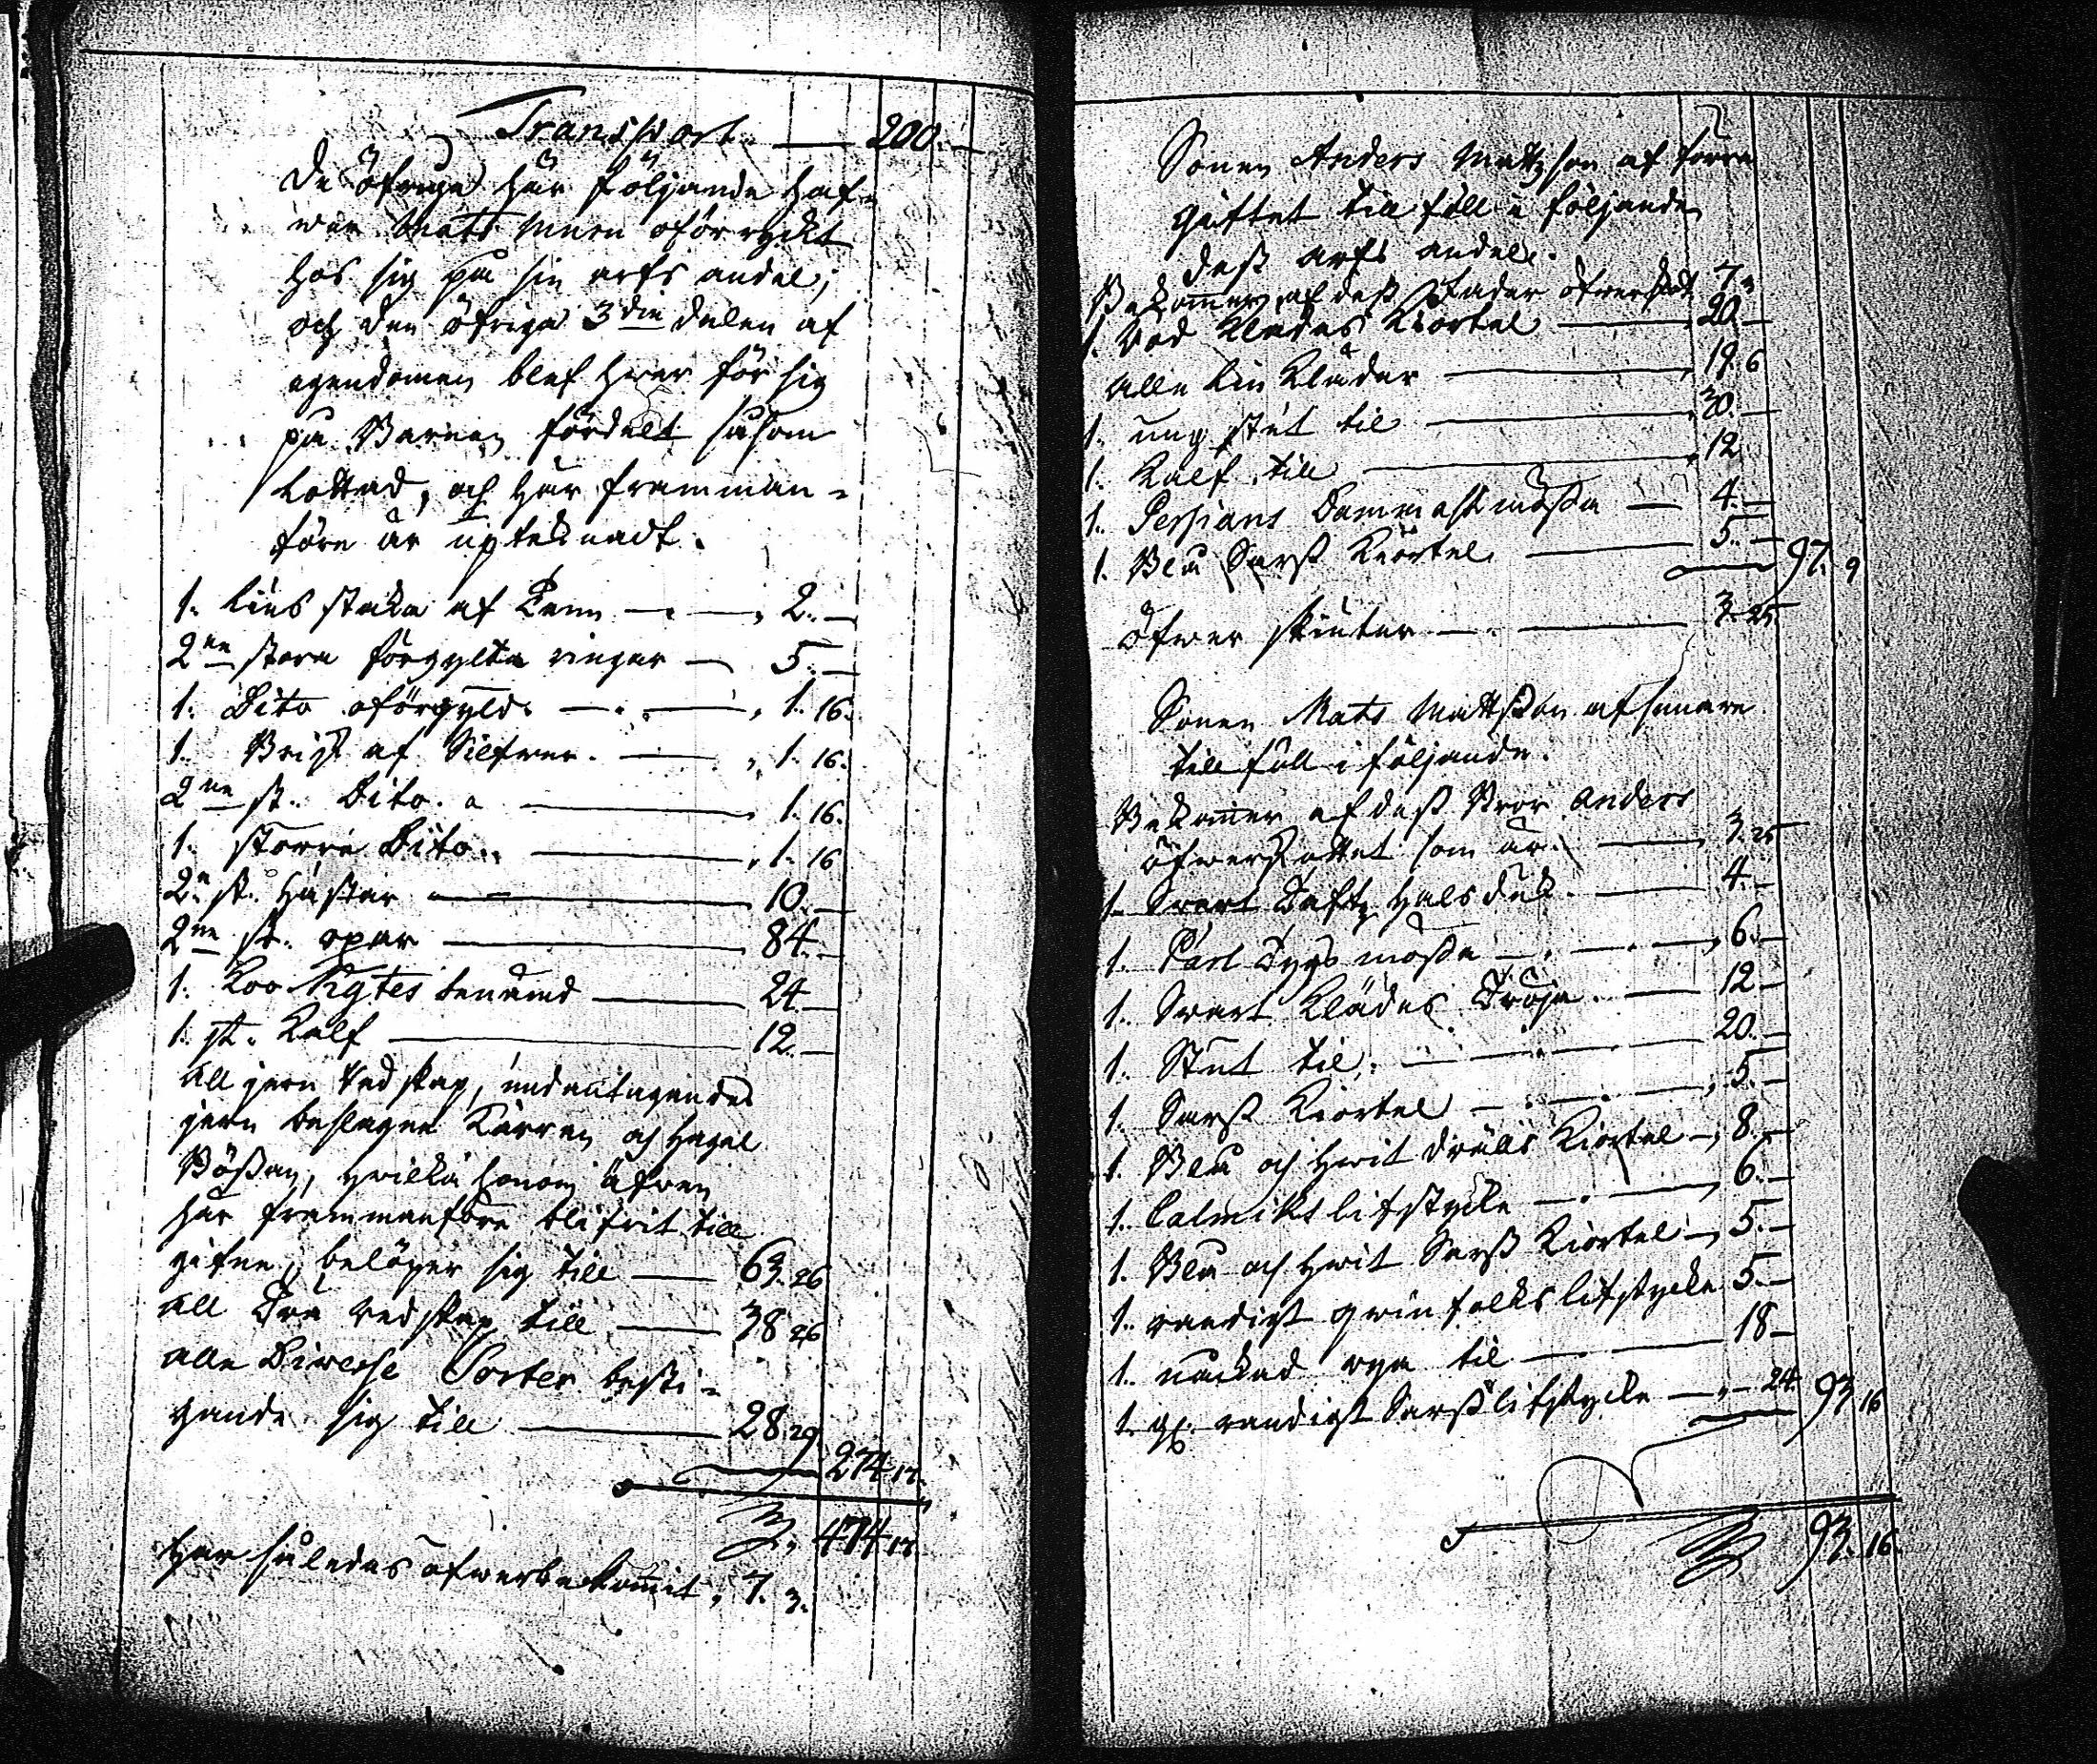 Transport — 200.—
De öfrige här följande haf-
wer Mats Munu oförryckt
hos sig på sin arfs andel;
och den öfriga 3die delen af
egendomen blef hwar för sig
på Barnen fördelt såsom
Lottad, och här framman-
före är uptecknadt.
1. lius staka af Tenn — 2.—
2ne stora förgylta ringar — 5.—
1. Dito oförgyld. — 1. 16.
1. Brist af Silfwer. — 1. 16.
2ne st. Dito. — 1. 16.
1. större Dito.. — 1. 16
2ne st. Hästar — 10.—
2ne st. oxar — 84.—
1. Koo Nytes benämd — 24.—
1. st. Kalf — 12.—
All jern Redskap, undantagandes
jern beslagne Kärran och Hagel
Bössan, hwilka honom äfwen
här frammanföre blifwit till
gifne, belöper sig till — 63. 26
All Trä redskap till — 38 26
Alle Diverse Sorter besti-
gande sig till — 28 29
274 17.
474 17.
Har således öfwerbekommit, 7. 3.
Sonen Anders Mattzson af förra
Giftet till föll i följande
dess arfs andel.
Bekommer af dess Fader öfwerskott 7.
1. Röd Klädes Kiortel — 20.—
Alle Lin Kläder — 19. 6
1. ung stut til — 30.—
1. Kalf till — 12
1. Persians Dammask mössa — 4.—
1. Blå Sarss Kiortel — 5.—
97. 9
Öfwer skiuter — 3. 25.
Sonen Mats Mattsson af senare
till föll i följande.
Bekommer af dess Bror Anders
öfwerskottet som är — 3. 25
1. Swart Tafts Halsduk — 4.—
1. Pärl Tygs mössa — 6.—
1. Swart Klädes Tröja — 12—
1. Stut til — 20.—
1. Sarss Kiortel — 5.—
1. Blå och Hwit dräls Kiortel — 8.—
1. Calmiks lifstycke — 6.—
1. Blå och Hwit Sarss Kiortel — 5.—
1. randigt qwinfolks lifstycke 5.—
1. rya til — 18—
1. randigt Sarss lifstycke — 24.
93 16
93. 16.